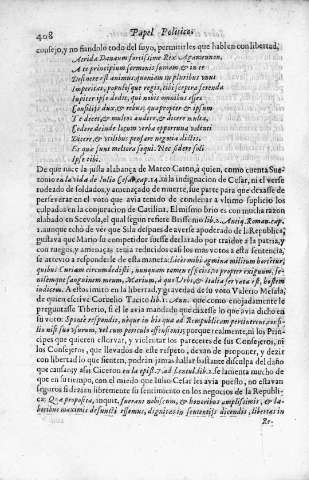 408 Papel Politico.
consejo, y no fiandolo todo del suyo, permitirles que hablen con libertad,
Atrida Danaum fortissime Rex Agamemnon,
A te principium sermonis sumam, & in te
Desinere est animus, quoniam in pluribus unus
Imperitas, populosque regis, tibi sceptra ferenda
Iupiter ipse dedit, qui nobis omnibus esses
Consilijs dux, & rebus, qua propter & ipsum
Te decet, & multos audire, & dicere multa,
Cedere deinde locum verba opportuna
Demissi ducere dignis.
Ex quae sunt meliora sequi. Nec sidere soli
Ipse tibi.
De que nace la justa alabança de Marco Caton, à quien, como cuenta Sue-
tonio en la vida de Iulio Cesar cap. 14. la indignacion de Cesar, ni el verse
rodeado de soldados, y amenaçado de muerte, fue parte para que dexasse de
perseverar en el voto que avia tenido de condenar a ultimo suplicio los
culpados en la conjuracion de Catilina. El mismo brio es con mucha razon
alabado en Scevola, el qual segun refiere
aunque echò de ver que Sila despues de averse apoderado de la Republica
gustava que Mario su competidor fuesse declarado por traidor a la patria, y
con ruegos, y amenaças tenia reducidos casi los mas votos a esta sentencia,
se atrevio a responderle de esta manera: Licet mihi agmina militum
quibus Curiam circumdedisti, nunquam tamen efficies, propter exiguum, se-
nilemque sanguinem meum, Marium, a quo Urbs, & Italia servata est, hostem
iudicem. A estos imitò en la libertad, y gravedad de su voto Valerio Mesala,
de quien escrive Cornelio Tacito lib. 1. Ann. que como enojadamente le
preguntasse Tiberio, si el le avia mandado que dixesse lo que avia dicho en
su voto: Sponte respondit, neque in ijs quae ad Rempublicam pertinerent consi-
lio nisi suo usurum, vel cum periculo offensionis; porque realmente, ni los Prin-
cipes que quieren estorvar, y violentar los pareceres de sus Consejeros, ni
los Consejeros, que llevados de este respeto, dexan de proponer, y dezir
con libertad lo que sienten, podràn jamas hallar bastante disculpa del daño
que causan; y assi Ciceron en la epist. 7. ad Lentul. lib. 2. se lamenta mucho de
que en su tiempo, con el miedo que Iulio Cesar les avia puesto, no estavan
seguros si dezian libremente su sentimiento en los negocios de la Republi-
ca: Quae proposita, inquit, fuerant nobiscum, & honoribus amplissimis, & la-
boribus maximis defuncti essemus, dignitas in sententijs dicendis, libertas in
Re-